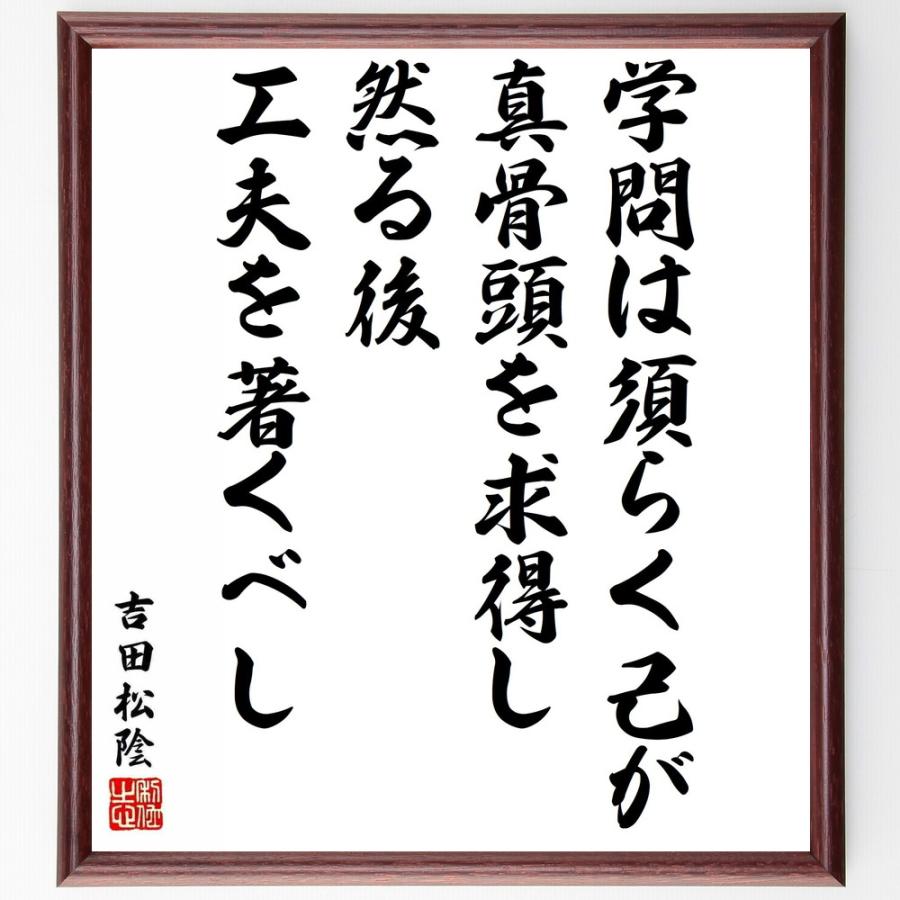 学問は須らく己が
真骨頭を求得し
然る後
工夫を著くべし
吉田松陰